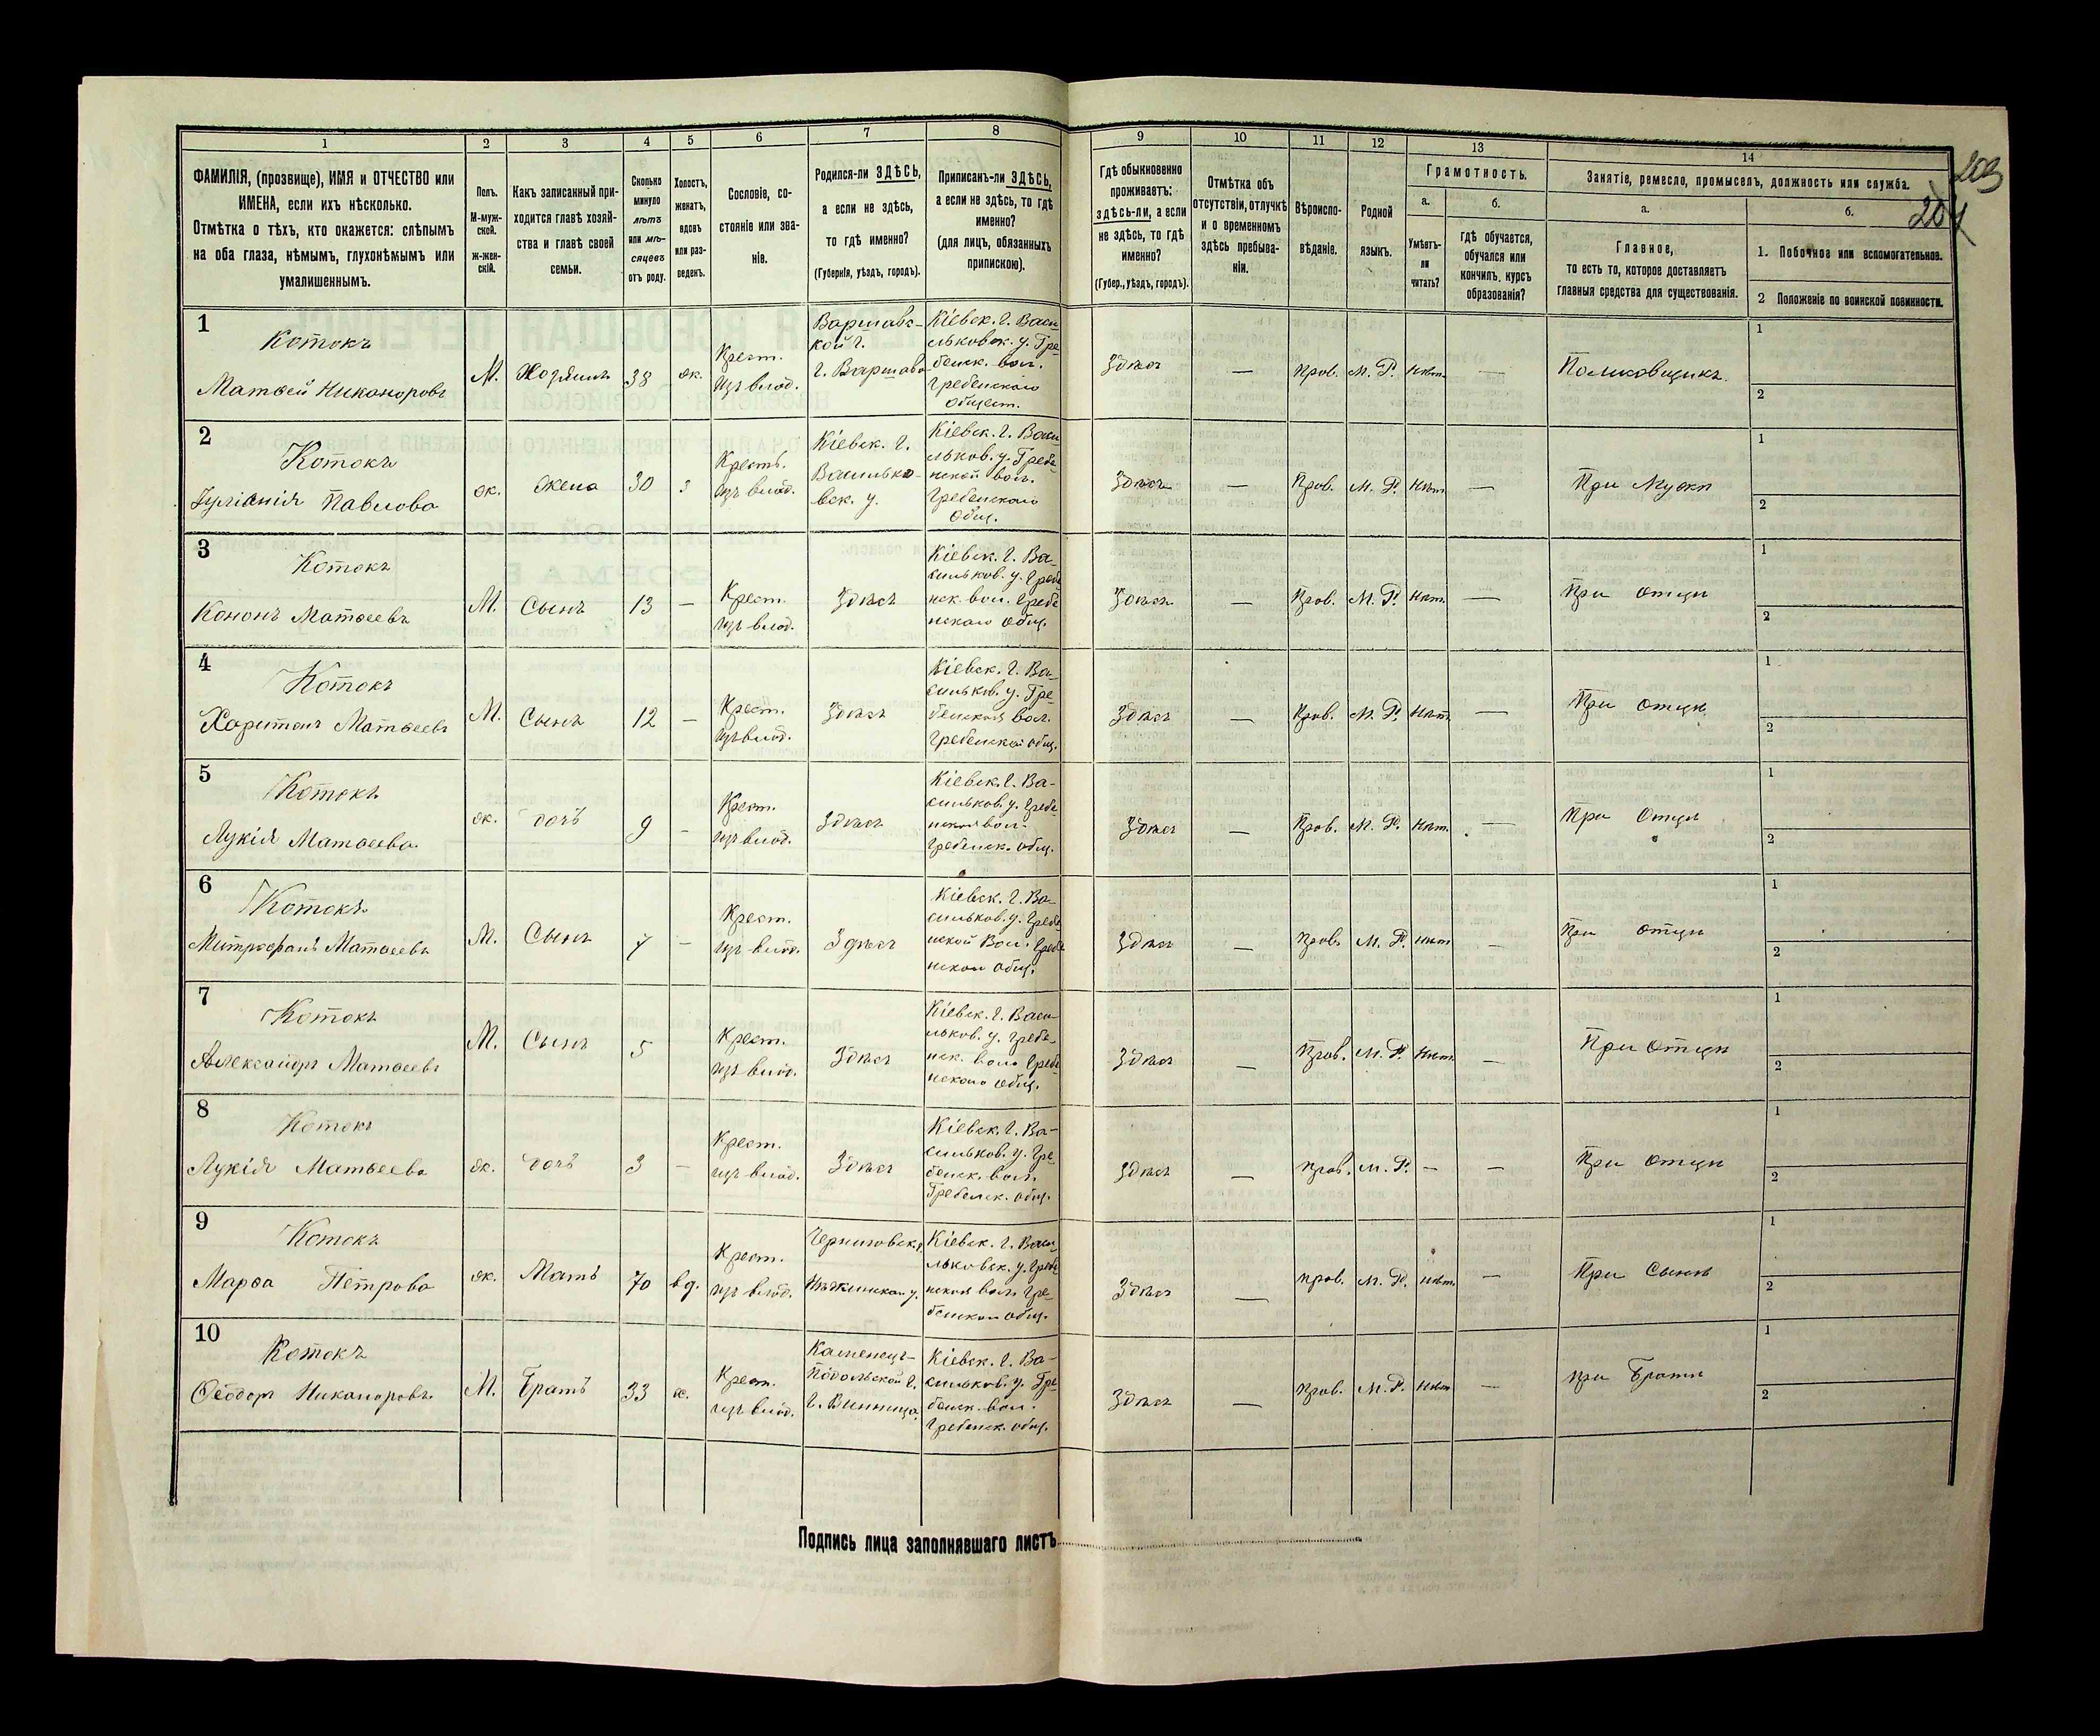 203
204
1
2
3
4
5
6
7
8
9
10
11
12
13
14
ФАМИЛІЯ, (прозвище), ИМЯ и ОТЧЕСТВО или
ИМЕНА, если ихъ нѣсколько.
Отмѣтка о тѣхъ, кто окажется: слѣпымъ
на оба глаза, нѣмымъ, глухонѣмымъ или
умалишеннымъ.
Полъ.
М-муж-
ской.
ж-жен-
скій.
Какъ записанный при-
ходится главѣ хозяй-
ства и главѣ своей
семьи.
Сколько
минуло
лѣтъ
или мѣ-
сяцевъ
отъ роду.
Холостъ,
женатъ,
вдовъ
или раз-
веденъ.
Сословіе, со-
стояніе или зва-
ніе.
Родился-ли ЗДѢСЬ,
а если не здѣсь,
то гдѣ именно?
(Губернія, уѣздъ, городъ).
Приписанъ-ли ЗДѢСЬ,
а если не здѣсь, то гдѣ
именно?
(для лицъ, обязанныхъ
припискою).
Гдѣ обыкновенно
проживаетъ:
здѣсь-ли, а если
не здѣсь, то гдѣ
именно?
(Губер., уѣздъ, городъ).
Отмѣтка объ
отсутствіи, отлучкѣ
и о временномъ
здѣсь пребыва-
ніи.
Вѣроиспо-
вѣданіе.
Родной
языкъ.
Грамотность.
а.
Умѣетъ-
ли
читать?
б.
Гдѣ обучается,
обучался или
кончилъ курсъ
образованія?
Занятіе, ремесло, промыселъ, должность или служба.
а.
Главное,
то есть то, которое доставляетъ
главныя средства для существованія.
б.
1. Побочное или вспомогательное.
2 Положеніе по воинской повинности.
1
Котокъ
Матѳей Никаноровъ
М.
Хозяинъ
38
ж.
Крест.
изъ влад.
Варшавс-
кой г.
г. Варшава
Кіевск. г. Васи-
льковск. у. Гре-
бенск. вол.
Гребенского
общест.
Здѣсь
—
Прав.
М. Р.
нѣт.
—
1
2
2
Котокъ
Павлова
ж.
Жена
30
з
Крестъ.
изъ влад.
Кіевск. г.
Василько-
вск. у.
Кіевск. г. Васи-
льков. у. Гребе-
нской вол.
Гребенского
общ.
Здѣсь
—
Прав.
М. Р.
нѣт
—
При мужѣ
1
2
3
Котокъ
Кононъ Матѳеевъ
М.
Сынъ
13
—
Крест.
изъ влад.
Здѣсь
Кіевск. г. Ва-
сильков. у. Гребе
нск. вол. Гребе
нского общ.
Здѣсь
—
Прав.
М. Р.
нѣт.
—
При отцѣ
1
2
4
Котокъ
Харитонъ Матѳеевъ
М.
Сынъ
12
—
Крест.
изъ влад.
Здѣсь
Кіевск. г. Ва-
сильков. у. Гре-
бенской вол.
Гребенской общ.
Здѣсь
—
Прав.
М. Р.
нѣт.
—
При отцѣ
1
2
5
Котокъ
Лукія Матѳеева
ж.
дочь
9
-
Крест.
изъ влад.
Здѣсь
Кіевск. г. Ва-
сильков. у. Гребе
нской вол.
Гребенск. общ.
Здѣсь
—
Прав.
М. Р.
нѣт.
—
При отцѣ
1
2
6
Котокъ
Митрофанъ Матѳеевъ
М.
Сынъ
7
-
Крест.
изъ влад.
Здѣсь
Кіевск. г. Ва-
сильков. у. Гребе
нской вол. Гребе
нской общ.
Здѣсь
—
Прав.
М. Р.
нѣт
—
При отцѣ
1
2
7
Котокъ
Александръ Матѳеевъ
М.
Сынъ
5
Крест.
изъ влад.
Здѣсь
Кіевск. г. Васи-
льков. у. Гребе-
нск. вол. Гребе
нского общ.
Здѣсь
—
Прав.
М. Р.
нѣт.
—
При отцѣ
1
2
8
Котокъ
Лукія Матѳеева
ж.
дочь
3
—
Крест.
изъ влад.
Здѣсь
Кіевск. г. Ва-
сильков. у. Гре-
бенск. вол.
Гребенск. общ.
Здѣсь
—
прав.
М. Р.
—
—
При отцѣ
1
2
9
Котокъ
Марѳа Петрова
ж.
Мать
70
вд.
Крест.
изъ влад.
Черниговск.
Нѣжинской у.
Кіевск. г. Васи-
льковск. у. Гребе
нской вол. Гре-
бенской общ.
Здѣсь
—
прав.
М. Р.
нѣт.
—
При сынѣ
1
2
10
Котокъ
Ѳеодоръ Никаноровъ
М.
Братъ
33
ж.
Крест.
изъ влад.
Каменецъ-
Подольской г.
г. Винница.
Кіевск. г. Ва-
сильков. у. Гре-
бенск. вол.
Гребенск. общ.
Здѣсь
—
прав.
М. Р.
нѣт
—
при братѣ
1
2
Подпись лица заполнявшаго листъ